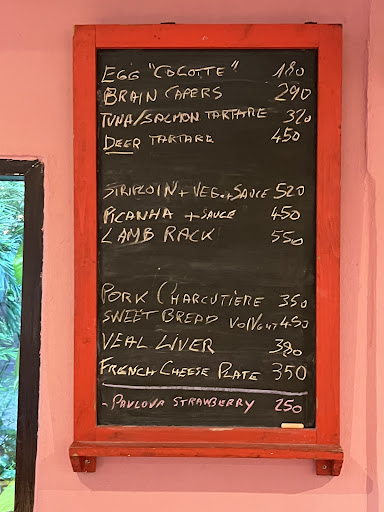 EGG "COCOTTE" 180
BRAIN CAPERS 290
TUNA/SALMON TARTARE 320
DEER TARTARE 450
SIRLOIN + VEG. + SAUCE 520
PICANHA + SAUCE 450
LAMB RACK 550
PORK CHARCUTIERE 350
SWEET BREAD VOLVENT 450
VEAL LIVER 380
FRENCH CHEESE PLATE 350
- PAVLOVA STRAWBERRY 250